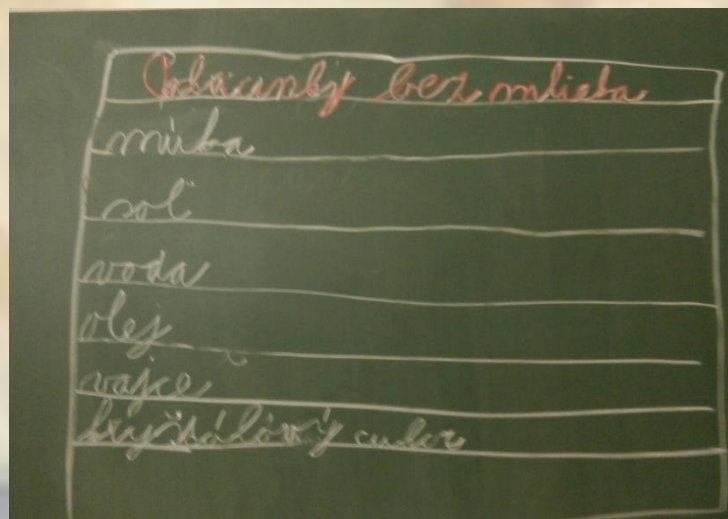 Palacinky bez mlieka
múka
soľ
voda
olej
vajce
kryštálový cukor